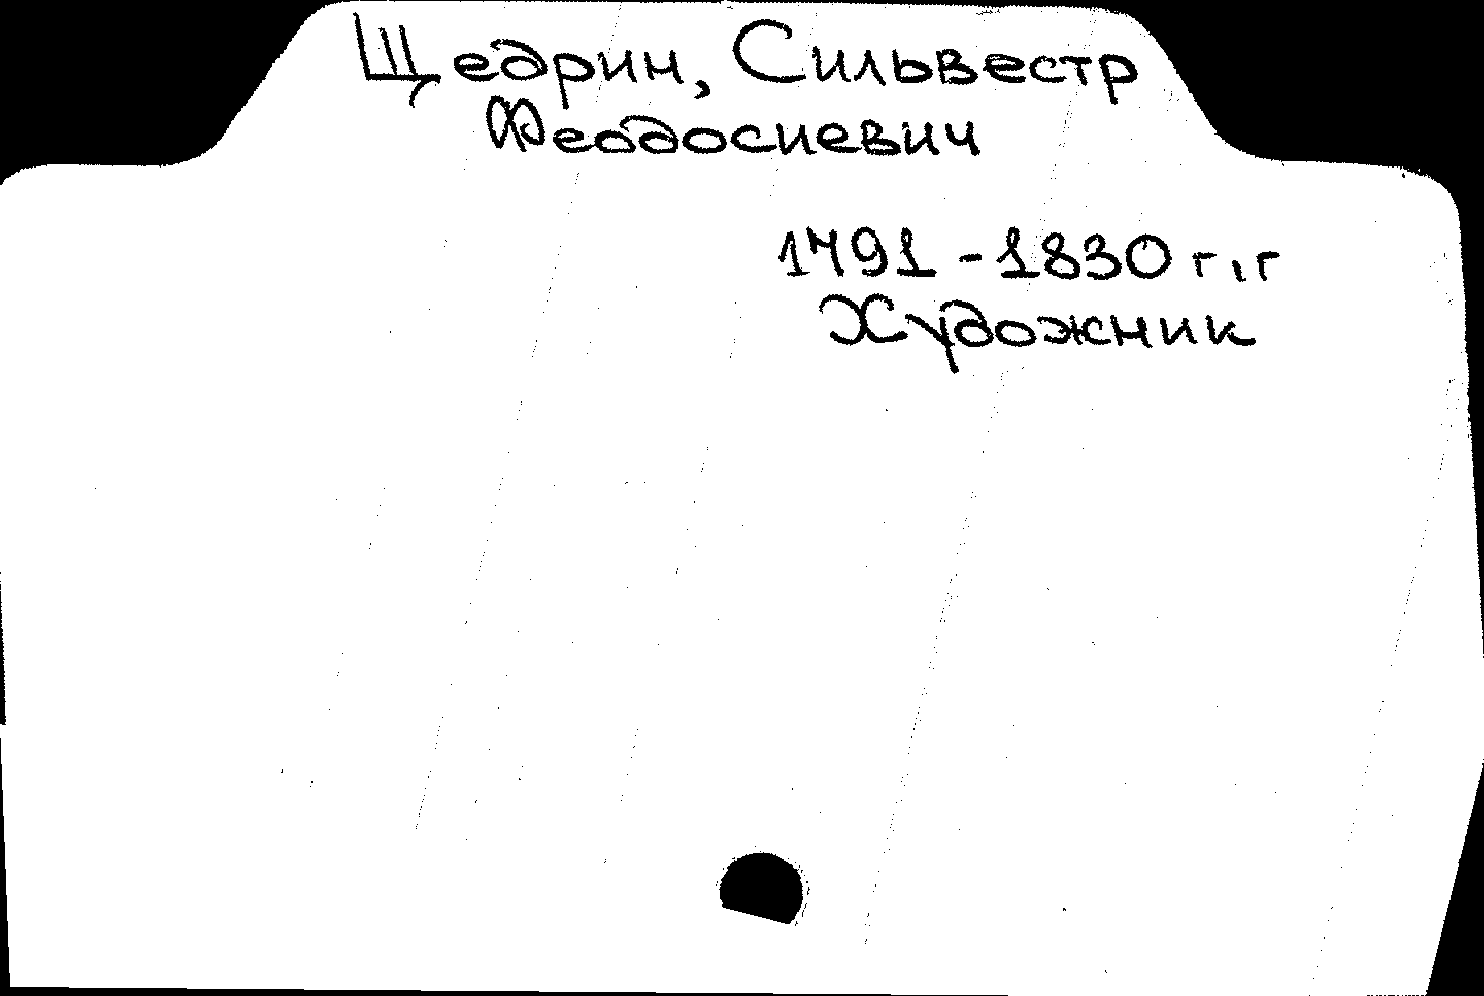 Щедрин, Сильвестр
Феодосиевич
1791-1830 г.г
Художник